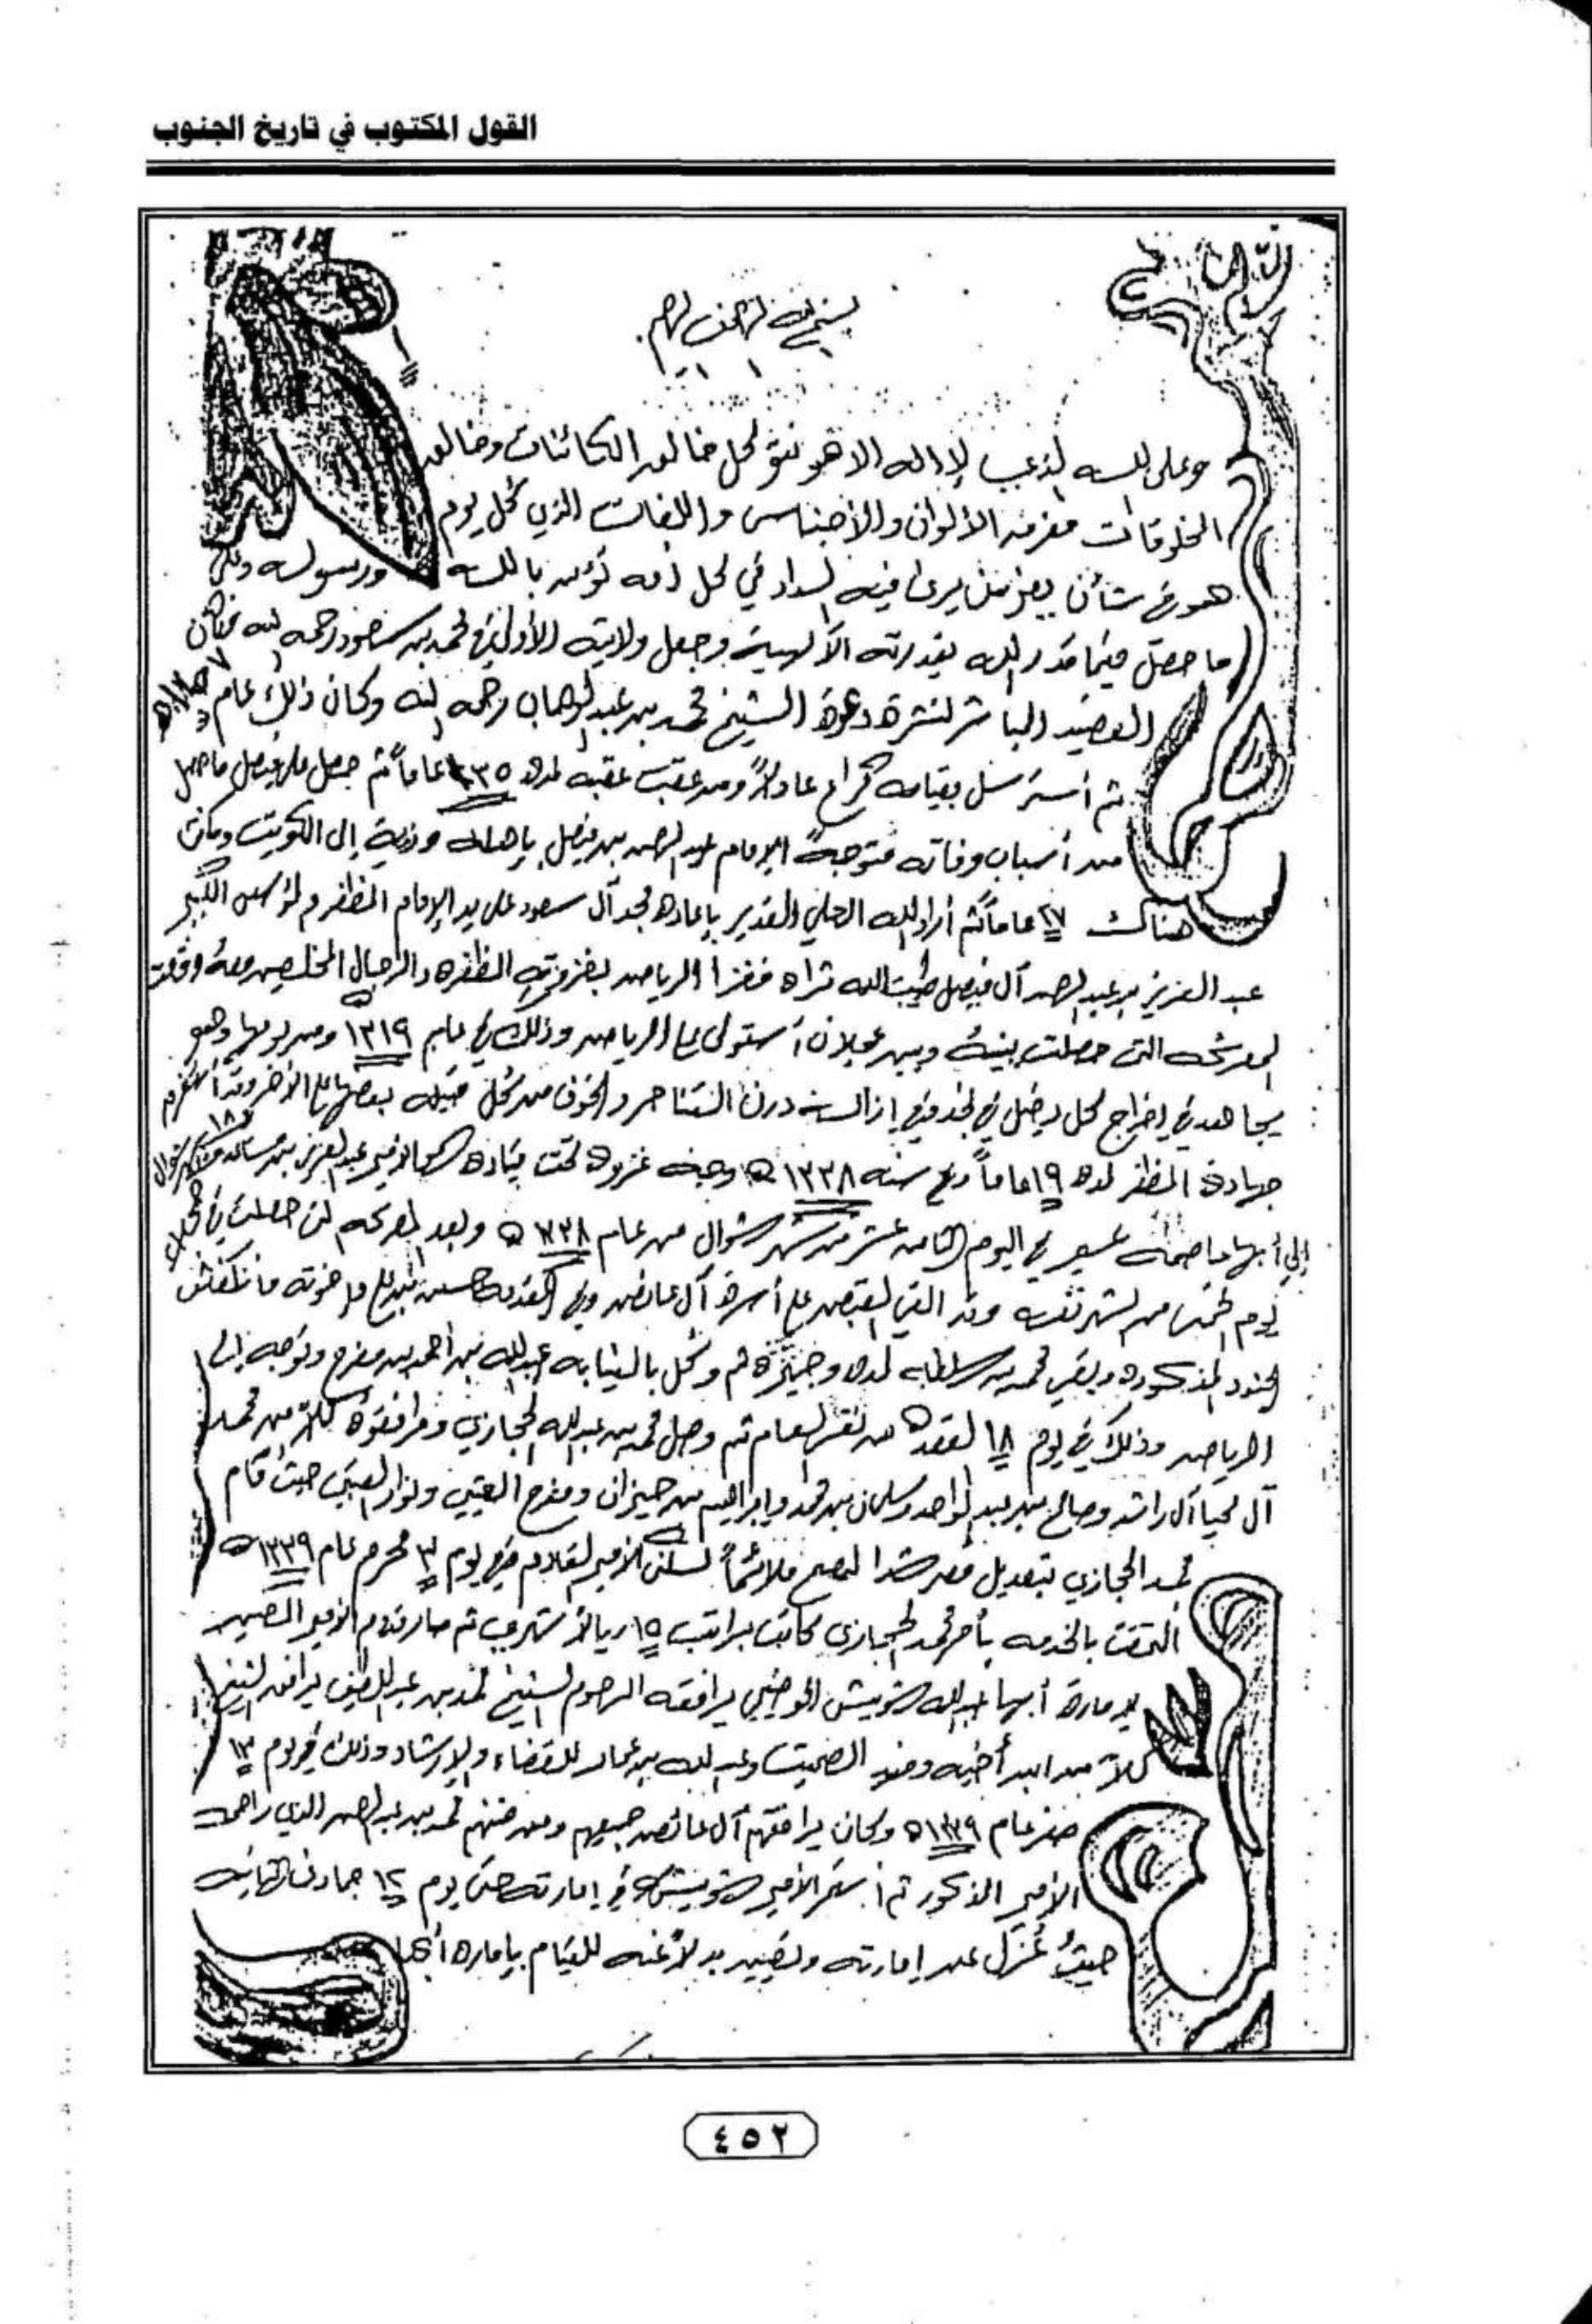 القول المكتوب في تاريخ الجنوب
بسم الله الرحمن الرحيم
وعلى الله الذي لا إله إلا هو نتوكل خالق الكائنات وخالق
المخلوقات مفرق الألوان والأجناس واللغات الذي كل يوم
هو في شأن يعز من يرى فيه السداد في كل أمه تؤمن بالله ورسوله وعلى
ما حصل فيما قدر الله بقدرته الآلهية وجعل ولاية الأولى في محمد بن سعود رحمه الله فكان
العضيد المباشر لنشرة دعوة الشيخ محمد بن عبد الوهاب رحمه الله وكان ذلك عام
ثم أسترسل بقيامه عادلاً ومن عقب عقبه لمدة عاماً ثم حصل على فيصل ما حصل
من أسباب وفاته متوجهاً الإمام عبد الرحمن بن فيصل بأهله وذويه إلى الكويت ومكث
هناك عاماً ثم أراد الله العلي القدير بإعادة مجد آل سعود على يد الإمام المظفر المؤسس الكبير
عبد العزيز بن عبد الرحمن آل فيصل طيب الله ثراه فغزا الرياض بغزوته المظفره والرجال المخلصين معه وقعت
المعركه التي حصلت بينه وبين عجلان أستولى على الرياض وذلك في عام ١٣١٩ ه ومن يومها وهو
يجاهد في إخراج كل دخيل في نجد وفي إزالة درن التناحر والخوف من كل قبيله بعضها على الأخر وقد أستمر في
جهادة المظفر لمدة ١٩ عاماً وفي سنه ١٣٣٨ ه وجه غزوه تحت قيادة سمو الأمير عبد العزيز بن مساعد شوال
إلى أبها عاصمة عسير في اليوم الثامن عشر من شهر شوال من عام ١٣٣٨ ه وبعد المعركه التي حصلت في حجلا
يوم الخميس من الشهر نفسه وقد القي القبض على أسرة آل عائض وفي المقدمه حسن بن علي وإخوته
الجنود المذكوره وبقي محمد بن سلطان لمده وجيزة ثم وكل بالنيابه عبد الله بن أحمد بن مفرح وتوجه إلى
الرياض وذلك في يوم ١٨ القعده من نفس العام ثم وصل محمد بن عبد الله الحجازي ومرافقوه كلاً من محمد
آل يحيا آل راشد وصالح بن عبد الواحد وسلمان بن محمد وإبراهيم بن خيزان ومفرح العتيبي حيث قام
محمد الحجازي بتعديل قصر شدا ليصبح ملائماً لسكن الأمير القادم ففي يوم ٣ محرم عام ١٣٣٩ ه
التحقت بالخدمه بأمر محمد الحجازي كاتب براتب ١٥ ريالاً شهري ثم صار قدوم الأمير المعين
لإمارة أبها عبد الله الشويش يرافقه المرحوم الشيخ محمد بن عبد اللطيف يرافق الشيخ
كلاً من ابن أخيه وعبد الله بن عمار للقضاء والإرشاد وذلك في يوم ١٣
صفر عام ١٣٣٩ ه وكان يرافقهم آل عائض جميعهم ومن ضمنهم محمد بن عبد الرحمن الذي
الأمير المذكور ثم أستمر الأمير الشويش في إمارته حتى يوم ١٢ جمادى الثانيه
حيث عُزل عن إمارته وتعيين بدلاً عنه للقيام بإمارة أبها
٤٥٢